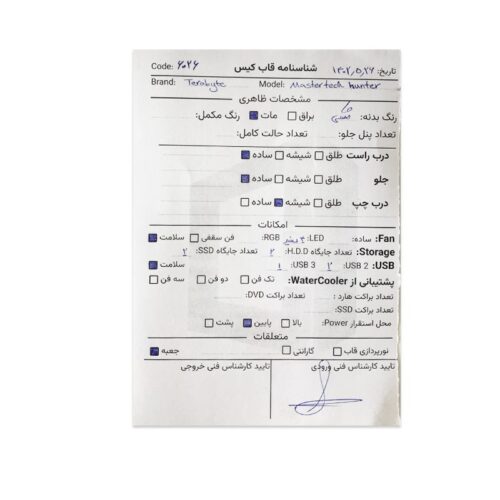 Code: ۶۰۲۶ شناسنامه قاب کیس تاریخ: ۱۴۰۲,۵,۲۶
Brand: Terabyte Model: Mastertech hunter
مشخصات ظاهری
رنگ بدنه: براق مات رنگ مکمل:
تعداد پنل جلو: تعداد حالت کامل:
درب راست طلق شیشه ساده
جلو طلق شیشه ساده
درب چپ طلق شیشه ساده
امکانات
Fan: ساده: LED: RGB: فن سقفی سلامت
Storage: تعداد جایگاه H.D.D: ۲ تعداد جایگاه SSD: ۲
USB: USB 2: ۲ USB 3: ۱ سلامت
پشتیبانی از WaterCooler: تک فن دو فن سه فن
تعداد براکت هارد: تعداد براکت DVD:
تعداد براکت SSD:
محل استقرار Power: بالا پایین پشت
متعلقات
نورپردازی قاب گارانتی جعبه
تایید کارشناس فنی ورودی تایید کارشناس فنی خروجی